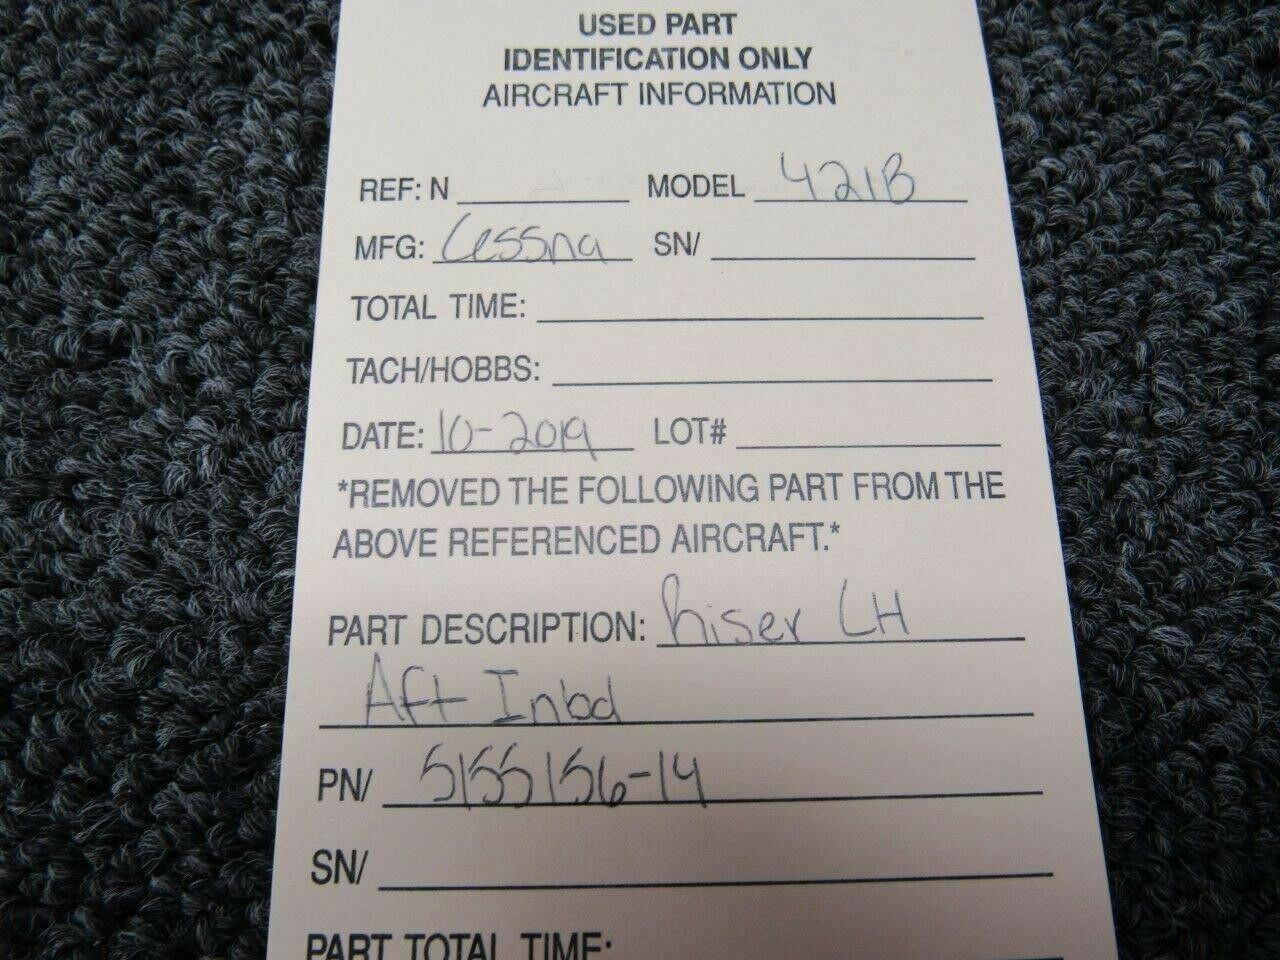 USED PART
IDENTIFICATION ONLY
AIRCRAFT INFORMATION
REF: N ________ MODEL 421B
MFG: Cessna SN/ ________
TOTAL TIME: ________
TACH/HOBBS: ________
DATE: 10-2019 LOT# ________
*REMOVED THE FOLLOWING PART FROM THE
ABOVE REFERENCED AIRCRAFT.*
PART DESCRIPTION: Riser LH
Aft Inbd
PN/ 5155156-14
SN/ ________
PART TOTAL TIME: